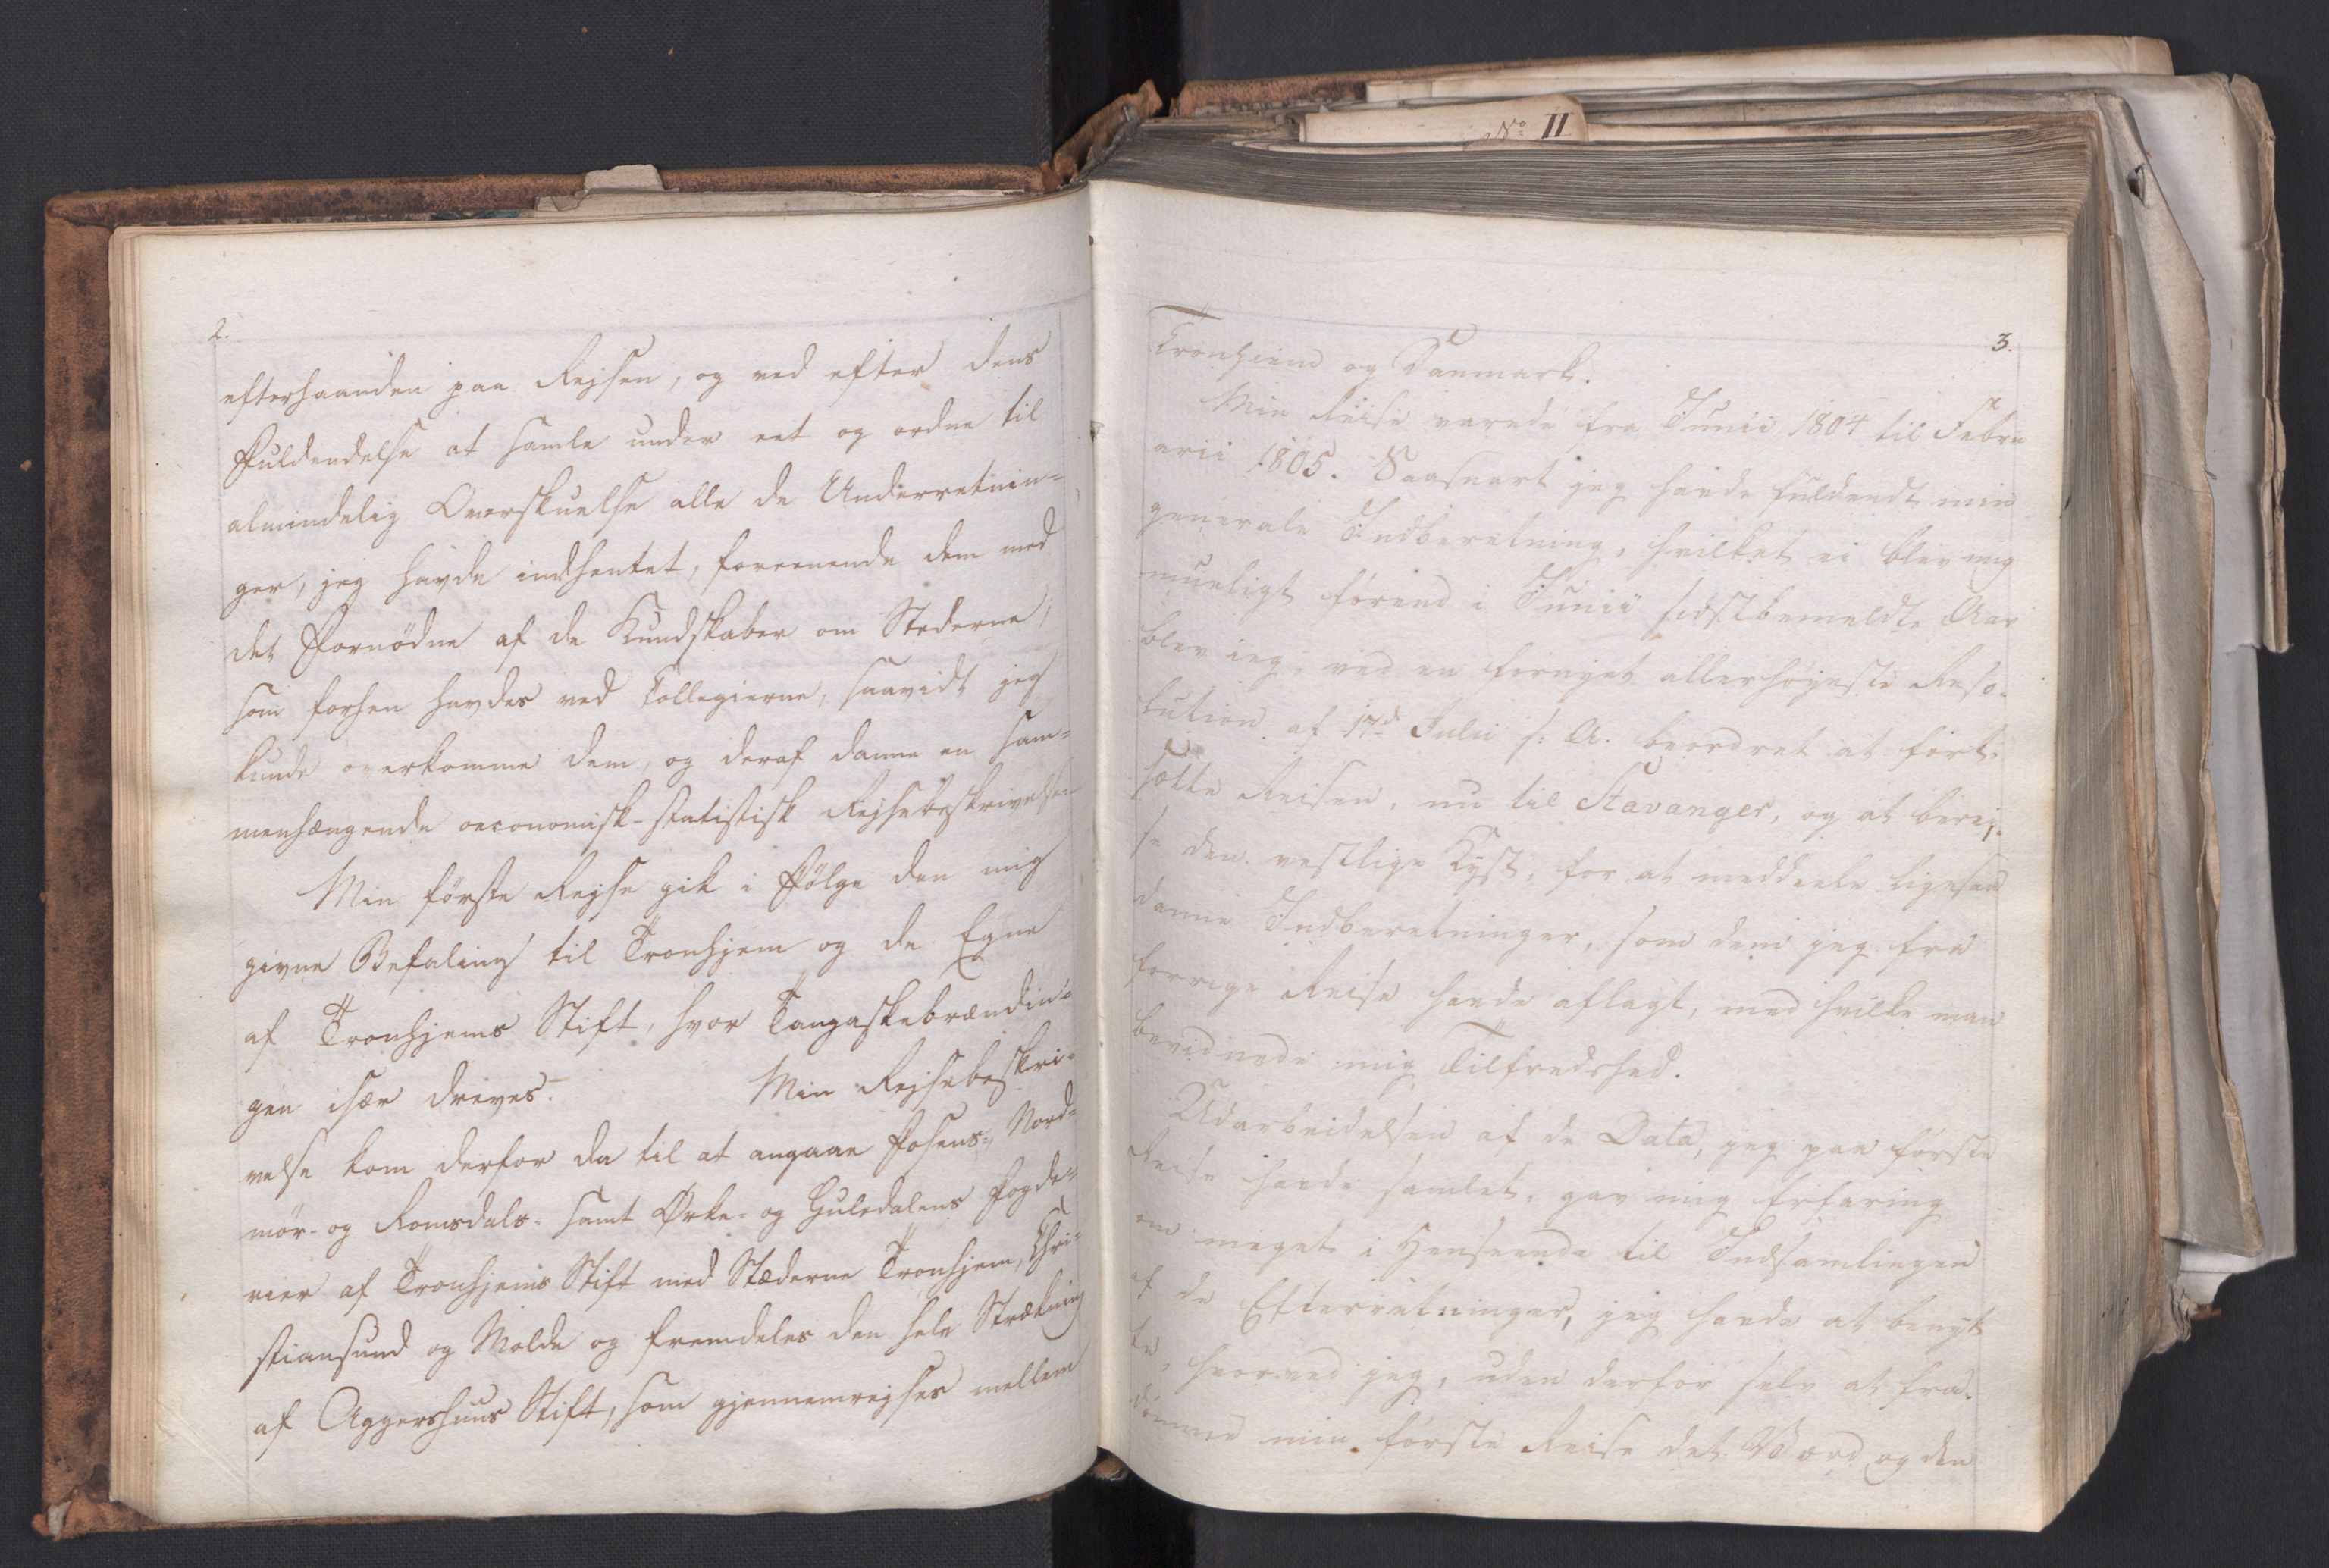 No II
2.
efterhaanden paa Rejsen, og ved efter dens
Fuldendelse at samle under eet og ordne til
almindelig Overskuelse alle de Underretnin-
ger, jeg havde indhentet, foreenende dem med
det Fornødne af de Kundskaber om Stederne,
som forhen havdes ved Collegierne, saavidt jeg
kunde overkomme dem, og deraf danne en sam-
menhængende oeconomisk-statistisk Rejsebeskrivelse
Min første Rejse gik i Følge den mig
givne Befaling til Tronhjem og de Egne
af Tronhjems Stift, hvor Tangaskebrændin-
gen især drives. Min Rejsebeskri-
velse kom derfor da til at angaae Fosens-, Nord-
mør- og Romsdals- samt Ørke- og Guledalens Fogde-
rier af Tronhjems Stift med Stæderne Tronhjem, Chri-
stiansund og Molde og fremdeles den hele Strækning
af Aggershuus Stift, som gjennemrejses mellem
3.
Tronhiem og Danmark.
Min Reise varede fra Junii 1804 til Febru
arii 1805. Saasnart jeg havde fuldendt min
generale Indberetning, hvilket ei blev mig
mueligt førend i Junii sidstbemeldte Aar
blev jeg, ved en fornyet allerhøjeste Reso-
lution af 17d Julii s: A. beordret at fort-
sætte Reisen, nu til Stavanger, og at berej-
se den vestlige Kyst, for at meddeele ligesaa
danne Indberetninger, som dem jeg fra
forrige Reise havde aflagt, med hvilke man
bevidnede mig Tilfredshed.
Udarbeidelsen af de Data, jeg paa første
Reise havde samlet, gav mig Erfaring
om meget i Henseende til Indsamlingen
af de Efterretninger, jeg havde at benyt
te, hvorved jeg, uden derfor selv at fra-
dømme min første Reise det Værd og den